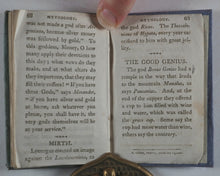 62 MYTHOLOGY.
was not made a god after
genious, because silver money
was followed by gold." To
this goddess, Money, O how
many apply their devotions to
this day; what do they not
make, and at the same time
they sacrifice their offerers! "If
you have these Gods," says Menander,
"If you have silver and gold
at home, whatever you ask, you
will have it, the very gods
themselves will be at your
service."
MIRTH.
Lycurgus erected an image
against the Lacedæmonians, to
MYTHOLOGY. 63
the god Risus. The Thessalonians
of Hypata, every year
sacrificed to him with great
jollity.
THE GOOD GENIUS.
The god Bonus Genius had a
temple in the way that leads
to the mountain Mænalus, as
says Pausanias. And, at the end
of the supper they offered
a cup to him filled with wine
and water, which was called
the grace cup. Some say the
cup had more water than wine,
others say the contrary.